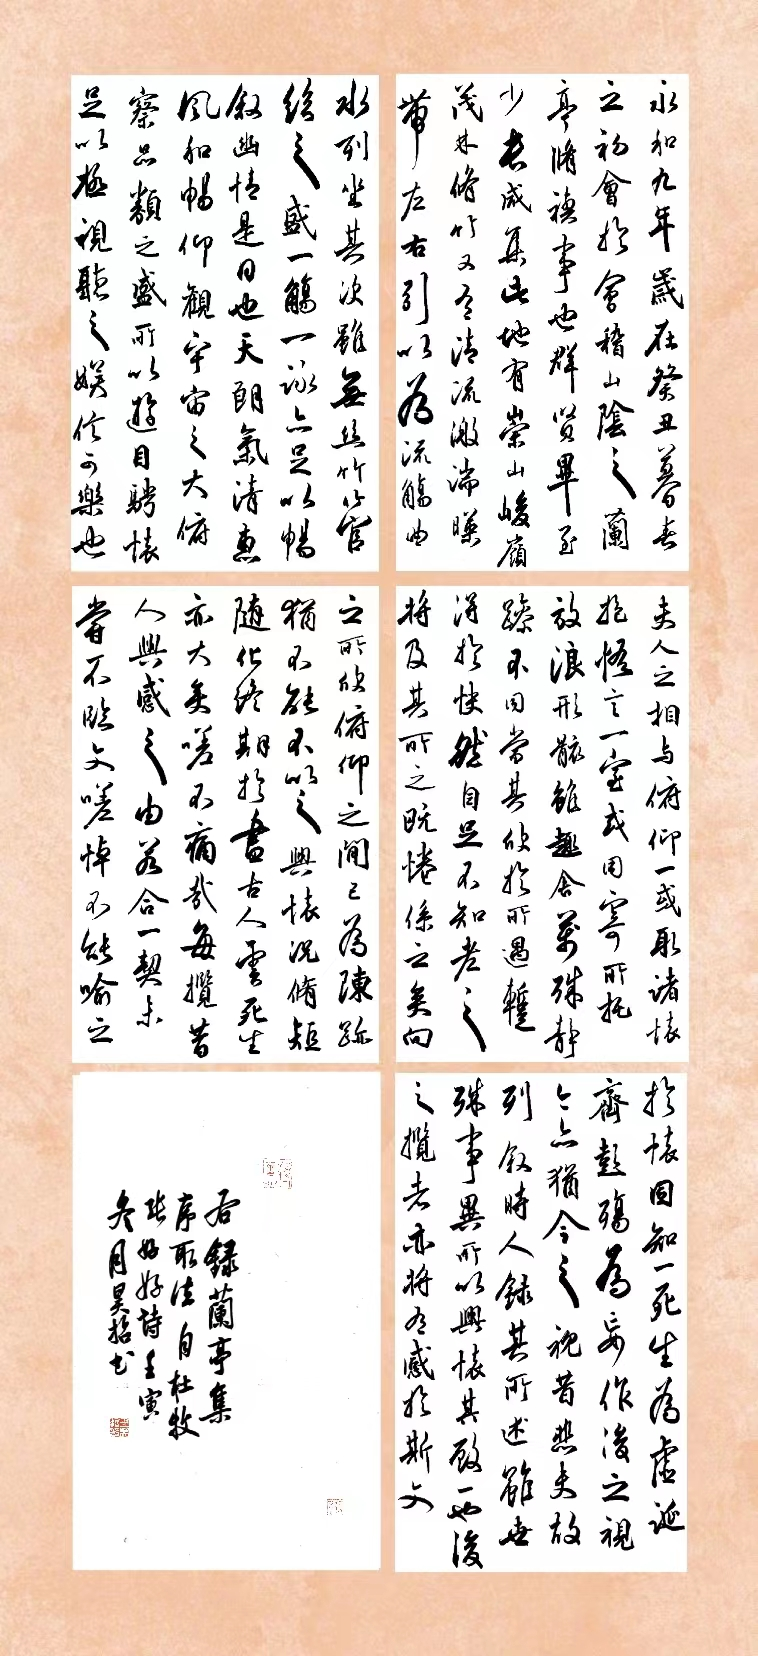 永和九年歲在癸丑暮春
之初會於會稽山陰之蘭
亭脩禊事也群賢畢至
少長咸集此地有崇山峻嶺
茂林脩竹又有清流激湍暎
帶左右引以為流觴曲
水列坐其次雖無絲竹管
絃之盛一觴一詠亦足以暢
敘幽情是日也天朗氣清惠
風和暢仰觀宇宙之大俯
察品類之盛所以遊目騁懷
足以極視聽之娛信可樂也
夫人之相与俯仰一或取諸懷
抱悟言一室或因寄所托
放浪形骸雖趣舍萬殊静
躁不同當其欣於所遇蹔
得於快然自足不知老之
將及其所之既惓係之矣向
之所欣俯仰之間已為陳跡
猶不能不以之興懷況脩短
隨化終期於盡古人雲死生
亦大矣嗟不痛哉每攬昔
人興感之由若合一契未
嘗不臨文嗟悼不能喻之
於懷固知一死生為虛誕
齊彭殤為妄作後之視
今亦猶今之視昔悲夫故
列敘時人録其所述雖世
殊事異所以興懷其致一也後
之攬者亦將有感於斯文
右録蘭亭集
序取法自杜牧
張好好詩壬寅
冬月昊招書